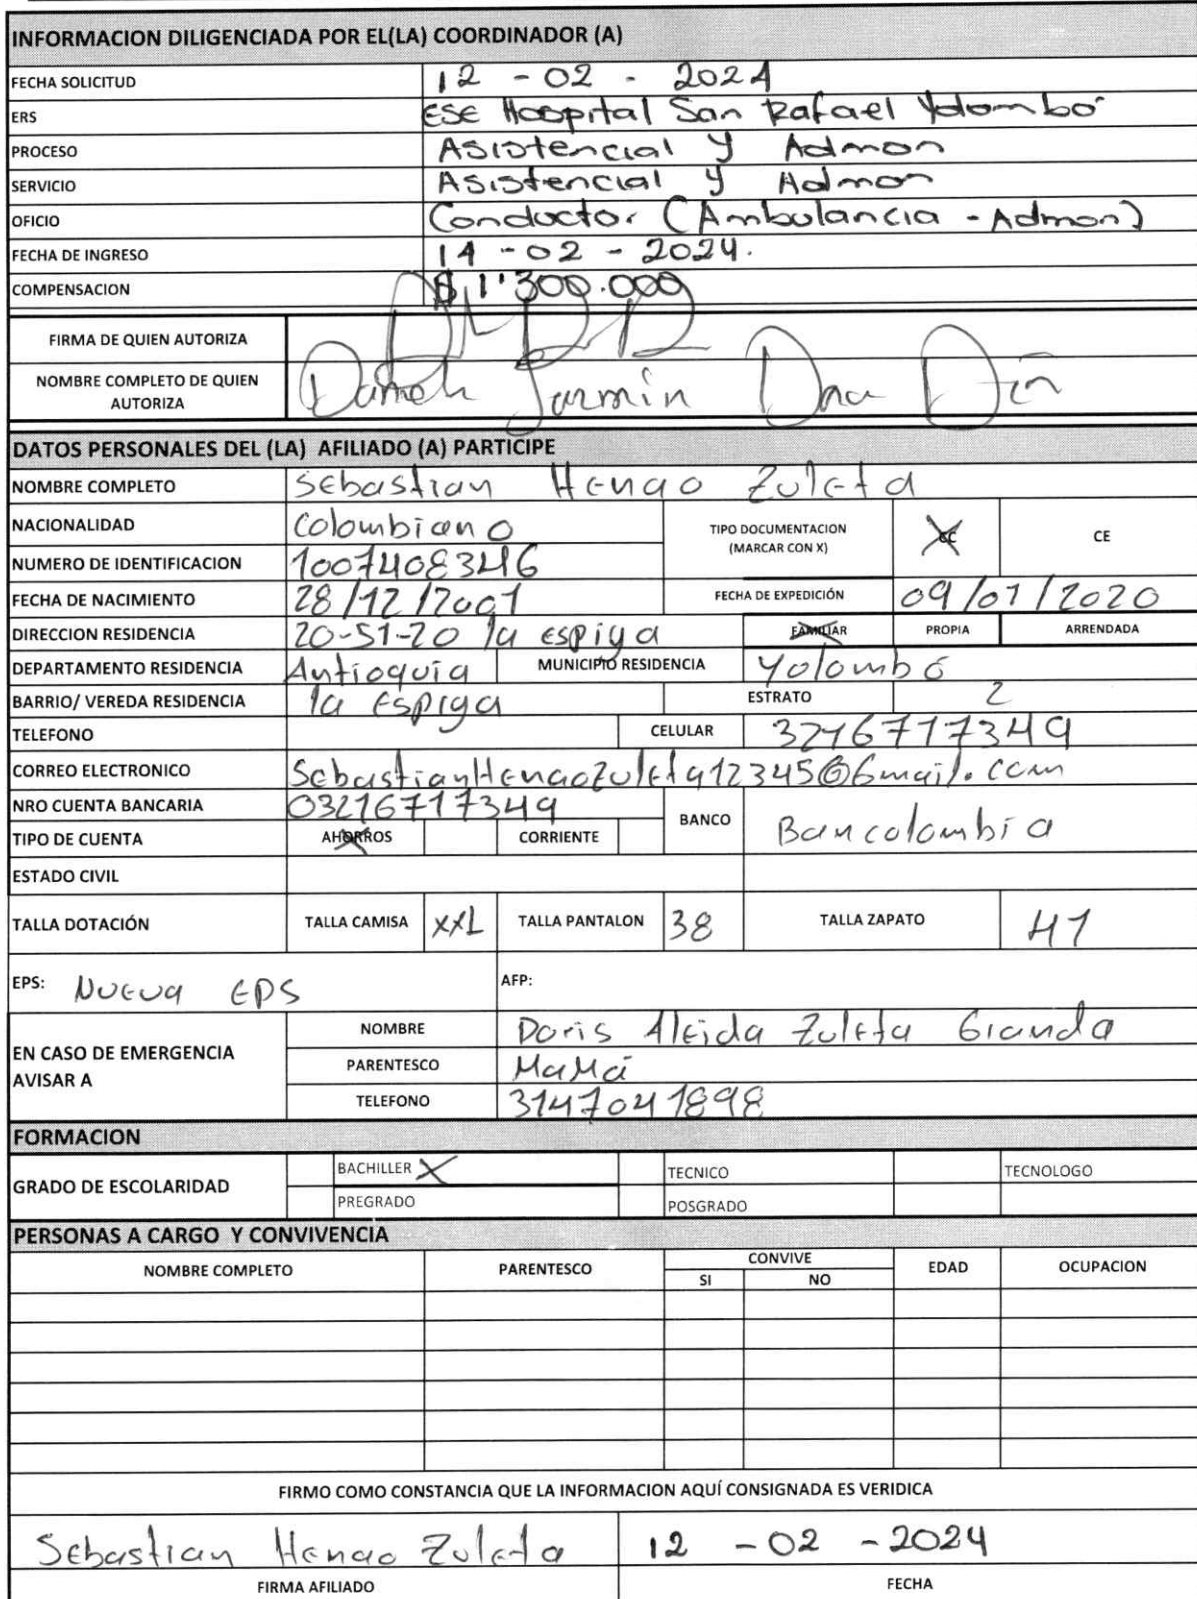 INFORMACION DILIGENCIADA POR EL(LA) COORDINADOR (A)
FECHA SOLICITUD 12 - 02 - 2024
ERS ESE Hospital San Rafael Yolombó
PROCESO Asistencial y Admon
SERVICIO Asistencial y Admon
OFICIO Conductor (Ambulancia - Admon)
FECHA DE INGRESO 14 - 02 - 2024.
COMPENSACION $ 1'300.000
FIRMA DE QUIEN AUTORIZA
NOMBRE COMPLETO DE QUIEN AUTORIZA
DATOS PERSONALES DEL (LA) AFILIADO (A) PARTICIPE
NOMBRE COMPLETO Sebastian Henao Zuleta
NACIONALIDAD Colombiano TIPO DOCUMENTACION (MARCAR CON X) CC X CE
NUMERO DE IDENTIFICACION 1007408346
FECHA DE NACIMIENTO 28/12/2001 FECHA DE EXPEDICIÓN 09/01/2020
DIRECCION RESIDENCIA 20-51-20 la espiga FAMILIAR X PROPIA ARRENDADA
DEPARTAMENTO RESIDENCIA Antioquia MUNICIPIO RESIDENCIA Yolombó
BARRIO/ VEREDA RESIDENCIA la Espiga ESTRATO 2
TELEFONO CELULAR 3216717349
CORREO ELECTRONICO SebastianHenaoZuleta12345@Gmail.com
NRO CUENTA BANCARIA 03216717349 BANCO Bancolombia
TIPO DE CUENTA AHORROS X CORRIENTE
ESTADO CIVIL
TALLA DOTACIÓN TALLA CAMISA XXL TALLA PANTALON 38 TALLA ZAPATO 41
EPS: Nueva EPS AFP:
EN CASO DE EMERGENCIA AVISAR A
NOMBRE Doris Aleida Zuleta
PARENTESCO MaMá
TELEFONO 3147041898
FORMACION
GRADO DE ESCOLARIDAD BACHILLER X TECNICO TECNOLOGO
PREGRADO POSGRADO
PERSONAS A CARGO Y CONVIVENCIA
NOMBRE COMPLETO PARENTESCO CONVIVE SI NO EDAD OCUPACION
FIRMO COMO CONSTANCIA QUE LA INFORMACION AQUÍ CONSIGNADA ES VERIDICA
Sebastian Henao Zuleta 12 - 02 - 2024
FIRMA AFILIADO FECHA